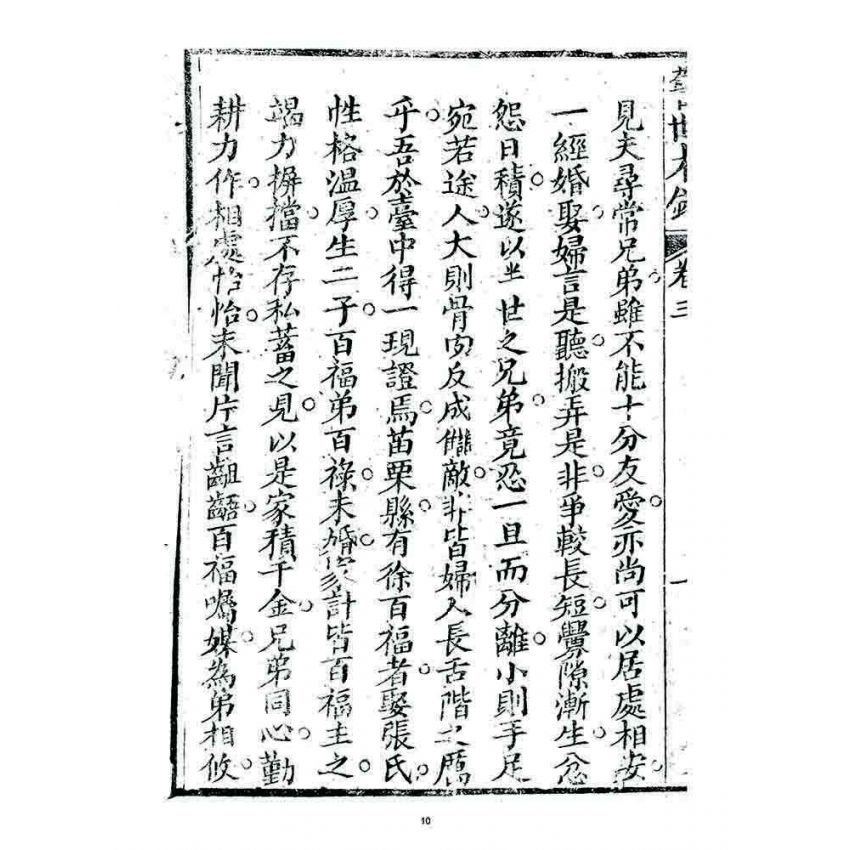 警世木鐸 卷三 一
見夫尋常兄弟雖不能十分友愛亦尚可以居處相安
一經婚娶婦言是聽搬弄是非爭較長短釁隙漸生忿
怨日積遂以坐世之兄弟竟忍一旦而分離小則手足
宛若途人大則骨肉反成讎敵非皆婦人長舌階之厲
乎吾於臺中得一現證焉苗栗縣有徐百福者娶張氏
性格溫厚生二子百福弟百祿未婚家計皆百福主之
竭力摒擋不存私蓄之見以是家積千金兄弟同心勤
耕力作相處怡怡未聞片言齟齬百福囑媒為弟相攸
10